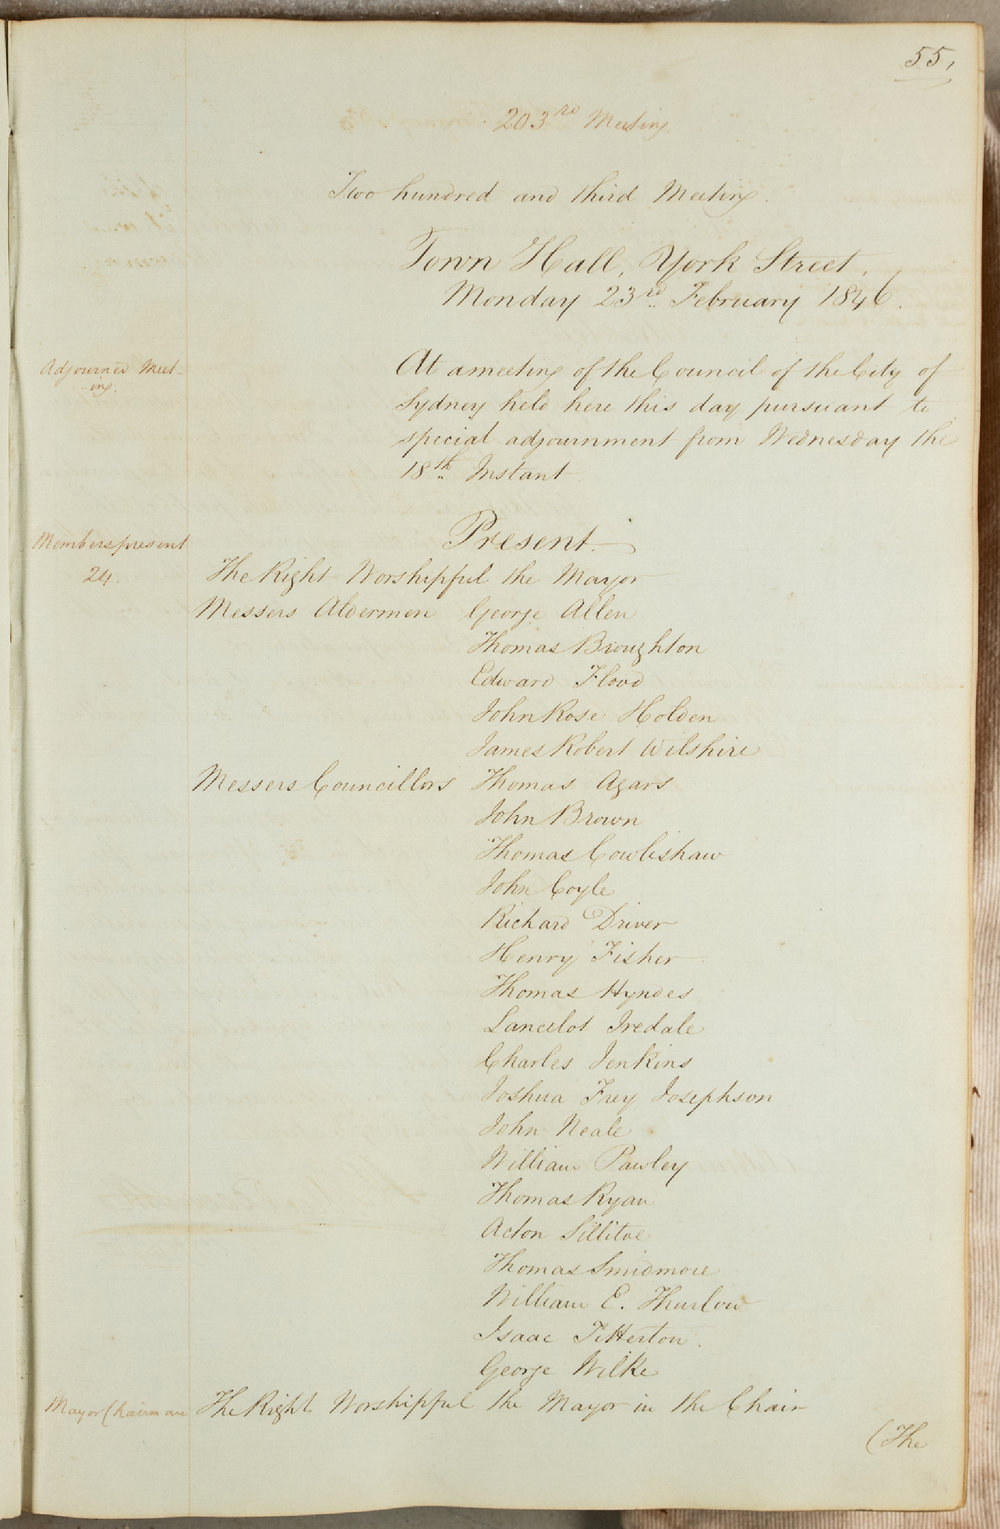 55,
203rd Meeting
Two hundred and third Meeting.
Town Hall, York Street,
Monday 23rd February 1846.
Adjourned Meet-
-ing.
At a meeting of the Council of the City of
Sydney held here this day pursuant to
special adjournment from Wednesday the
18th Instant
Present.
Members present
24.
The Right Worshipful the Mayor
Messers Aldermen George Allen
Thomas Broughton
Edward Flood
John Rose Holden
James Robert Wilshire
Messers Councillors Thomas Agars
John Brown
Thomas Cowlishaw
John Coyle
Richard Driver
Henry Fisher
Thomas Hyndes
Lancelot Iredale
Charles Jenkins
Joshua Frey Josephson
John Neale
William Pawley
Thomas Ryan
Acton Sillitoe
Thomas Smidmore
William E. Thurlow
Isaac Titterton.
George Wilkie
Mayor Chairman The Right Worshipful the Mayor in the Chair
(The